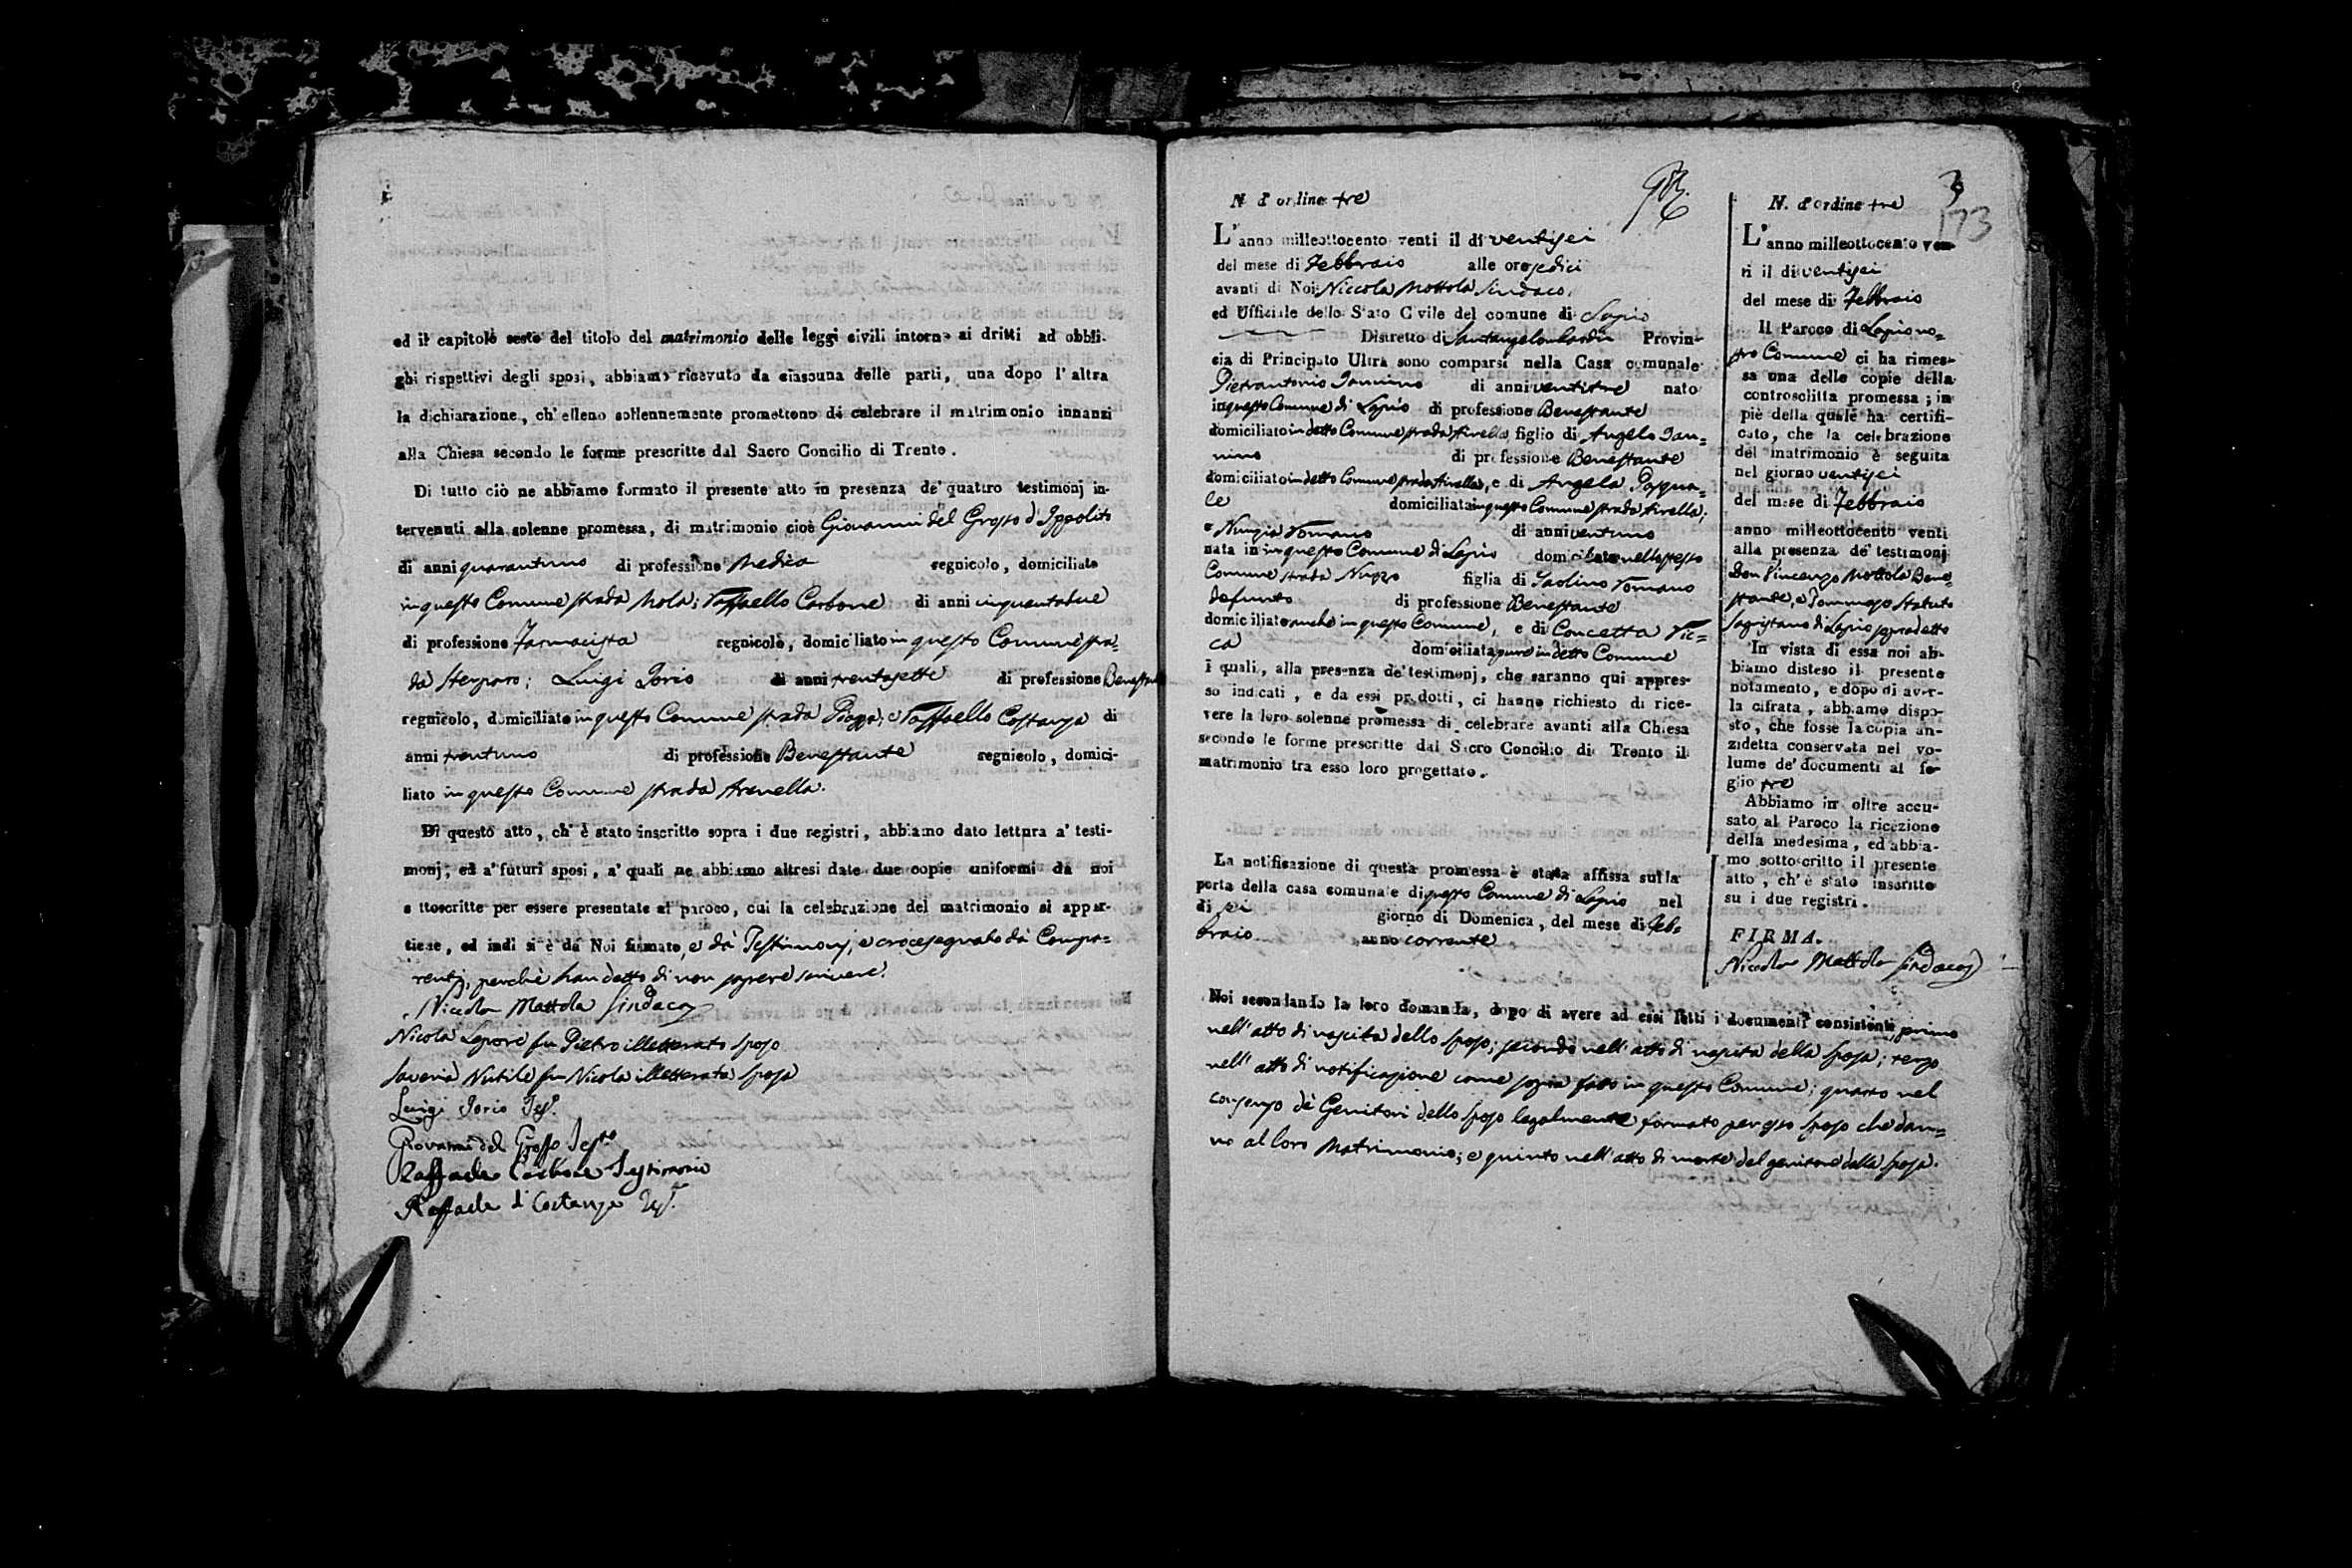 ed il capitolo sesto del titolo del matrimonio delle leggi civili intorno ai dritti ad obbli-
ghi rispettivi degli sposi, abbiamo ricevuto da ciascuna delle parti, una dopo l'altra
la dichiarazione, ch'elleno sollennemente promettono di celebrare il matrimonio innanzi
alla Chiesa secondo le forme prescritte dal Sacro Concilio di Trento.
Di tutto ciò ne abbiamo formato il presente atto in presenza de' quattro testimonj in-
tervenuti alla solenne promessa, di matrimonio cioè Giovanni del Grosso d'Ippolito
di anni quarantuno di professione Medico regnicolo, domiciliato
in questo Comune strada Mola; Raffaello Carbone di anni cinquantadue
di professione Farmacista regnicolo, domiciliato in questo Comune stra-
da ; Luigi Iorio di anni trentasette di professione Benestante
regnicolo, domiciliato in questo Comune strada Piazza, e Raffaello Costanza di
anni trentuno di professione Benestante regnicolo, domici-
liato in questo Comune strada Arenella.
Di questo atto, ch'è stato inscritto sopra i due registri, abbiamo dato lettura a' testi-
monj, ed a' futuri sposi, a' quali ne abbiamo altresi date due copie uniformi da noi
sottoscritte per essere presentate al paroco, cui la celebrazione del matrimonio si appar-
tiene, ed indi si è da Noi firmato, e dà Testimonj, e crocesegnato dà Compa=
renti, perchè han detto di non sapere scrivere.
Nicola Mottola Sindaco
Nicola Lepore fu Pietro illetterato sposo
Saveria Nutile fu Nicola illetterata sposa
Luigi Iorio Tes.
Giovanni del Grosso Testo
Raffaele Carbone Testimonio
Raffaele d Costanza Tes.
N. d'ordine tre
L'anno milleottocento venti il di ventisei
del mese di Febbraio alle ore sedici
avanti di Noi Niccola Mottola Sindaco,
ed Ufficiale dello Stato Civile del comune di Lapio
Distretto di Santangelolombardi Provin-
cia di Principato Ultra sono comparsi nella Casa comunale
Pietrantonio Iannino di anni ventitre nato
in questo Comune di Lapio di professione Benestante
domiciliato in detto Comune strada figlio di Angelo Ian=
nino di professione Benestante
domiciliato in detto Comune strada , e di Angela Pasqua=
le domiciliata in questo Comune strada ;
e Nunzia Romano di anni ventuno
nata in in questo Comune di Lapio domiciliata nello stesso
Comune strada Nuzzo figlia di Paolino Romano
defunto di professione Benestante
domiciliato anche in questo Comune, e di Concetta Ric=
ca domiciliata pure in detto Comune
i quali, alla presenza de' testimonj, che saranno qui appres-
so indicati, e da essi prodotti, ci hanno richiesto di rice-
vere la loro solenne promessa di celebrare avanti alla Chiesa
secondo le forme prescritte dal Sacro Concilio di Trento il
matrimonio tra esso loro progettato.
La notificazione di questa promessa è stata affissa sulla
porta della casa comunale di questo Comune di Lapio nel
di sei giorno di Domenica, del mese di Feb=
braio anno corrente
Noi secondando la loro domanda, dopo di avere ad essi letti i documenti consistenti, primo
nell'atto di nascita dello sposo; secondo nell'atto di nascita della sposa; terzo
nell'atto di notificazione come sopra fatto in questo Comune; quarto nel
consenso de' Genitori dello sposo legalmente formato per esso sposo che dan=
no al loro Matrimonio; e quinto nell'atto di morte del genitore della sposa.
3
173
N. d'ordine tre
L'anno milleottocento ven-
ti il di ventisei
del mese di Febbraio
Il Paroco di Lapio no=
stro Comune ci ha rimes-
sa una delle copie della
controscritta promessa; in
piè della quale ha certifi-
cato, che la celebrazione
del matrimonio è seguita
nel giorno ventisei
del mese di Febbraio
anno milleottocento venti
alla presenza de' testimonj
Don Vincenzo Mottola Bene
stante, e Tommaso Statuto
Sagristano di Lapio sopradetto
In vista di essa noi ab-
biamo disteso il presente
notamento, e dopo di aver-
la cifrata, abbiamo dispo-
sto, che fosse la copia an-
zidetta conservata nel vo-
lume de' documenti al fo-
glio tre
Abbiamo in oltre accu-
sato al Paroco la ricezione
della medesima, ed abbia-
mo sottoscritto il presente
atto, ch'è stato inscritto
su i due registri.
FIRMA.
Nicola Mottola Sindaco